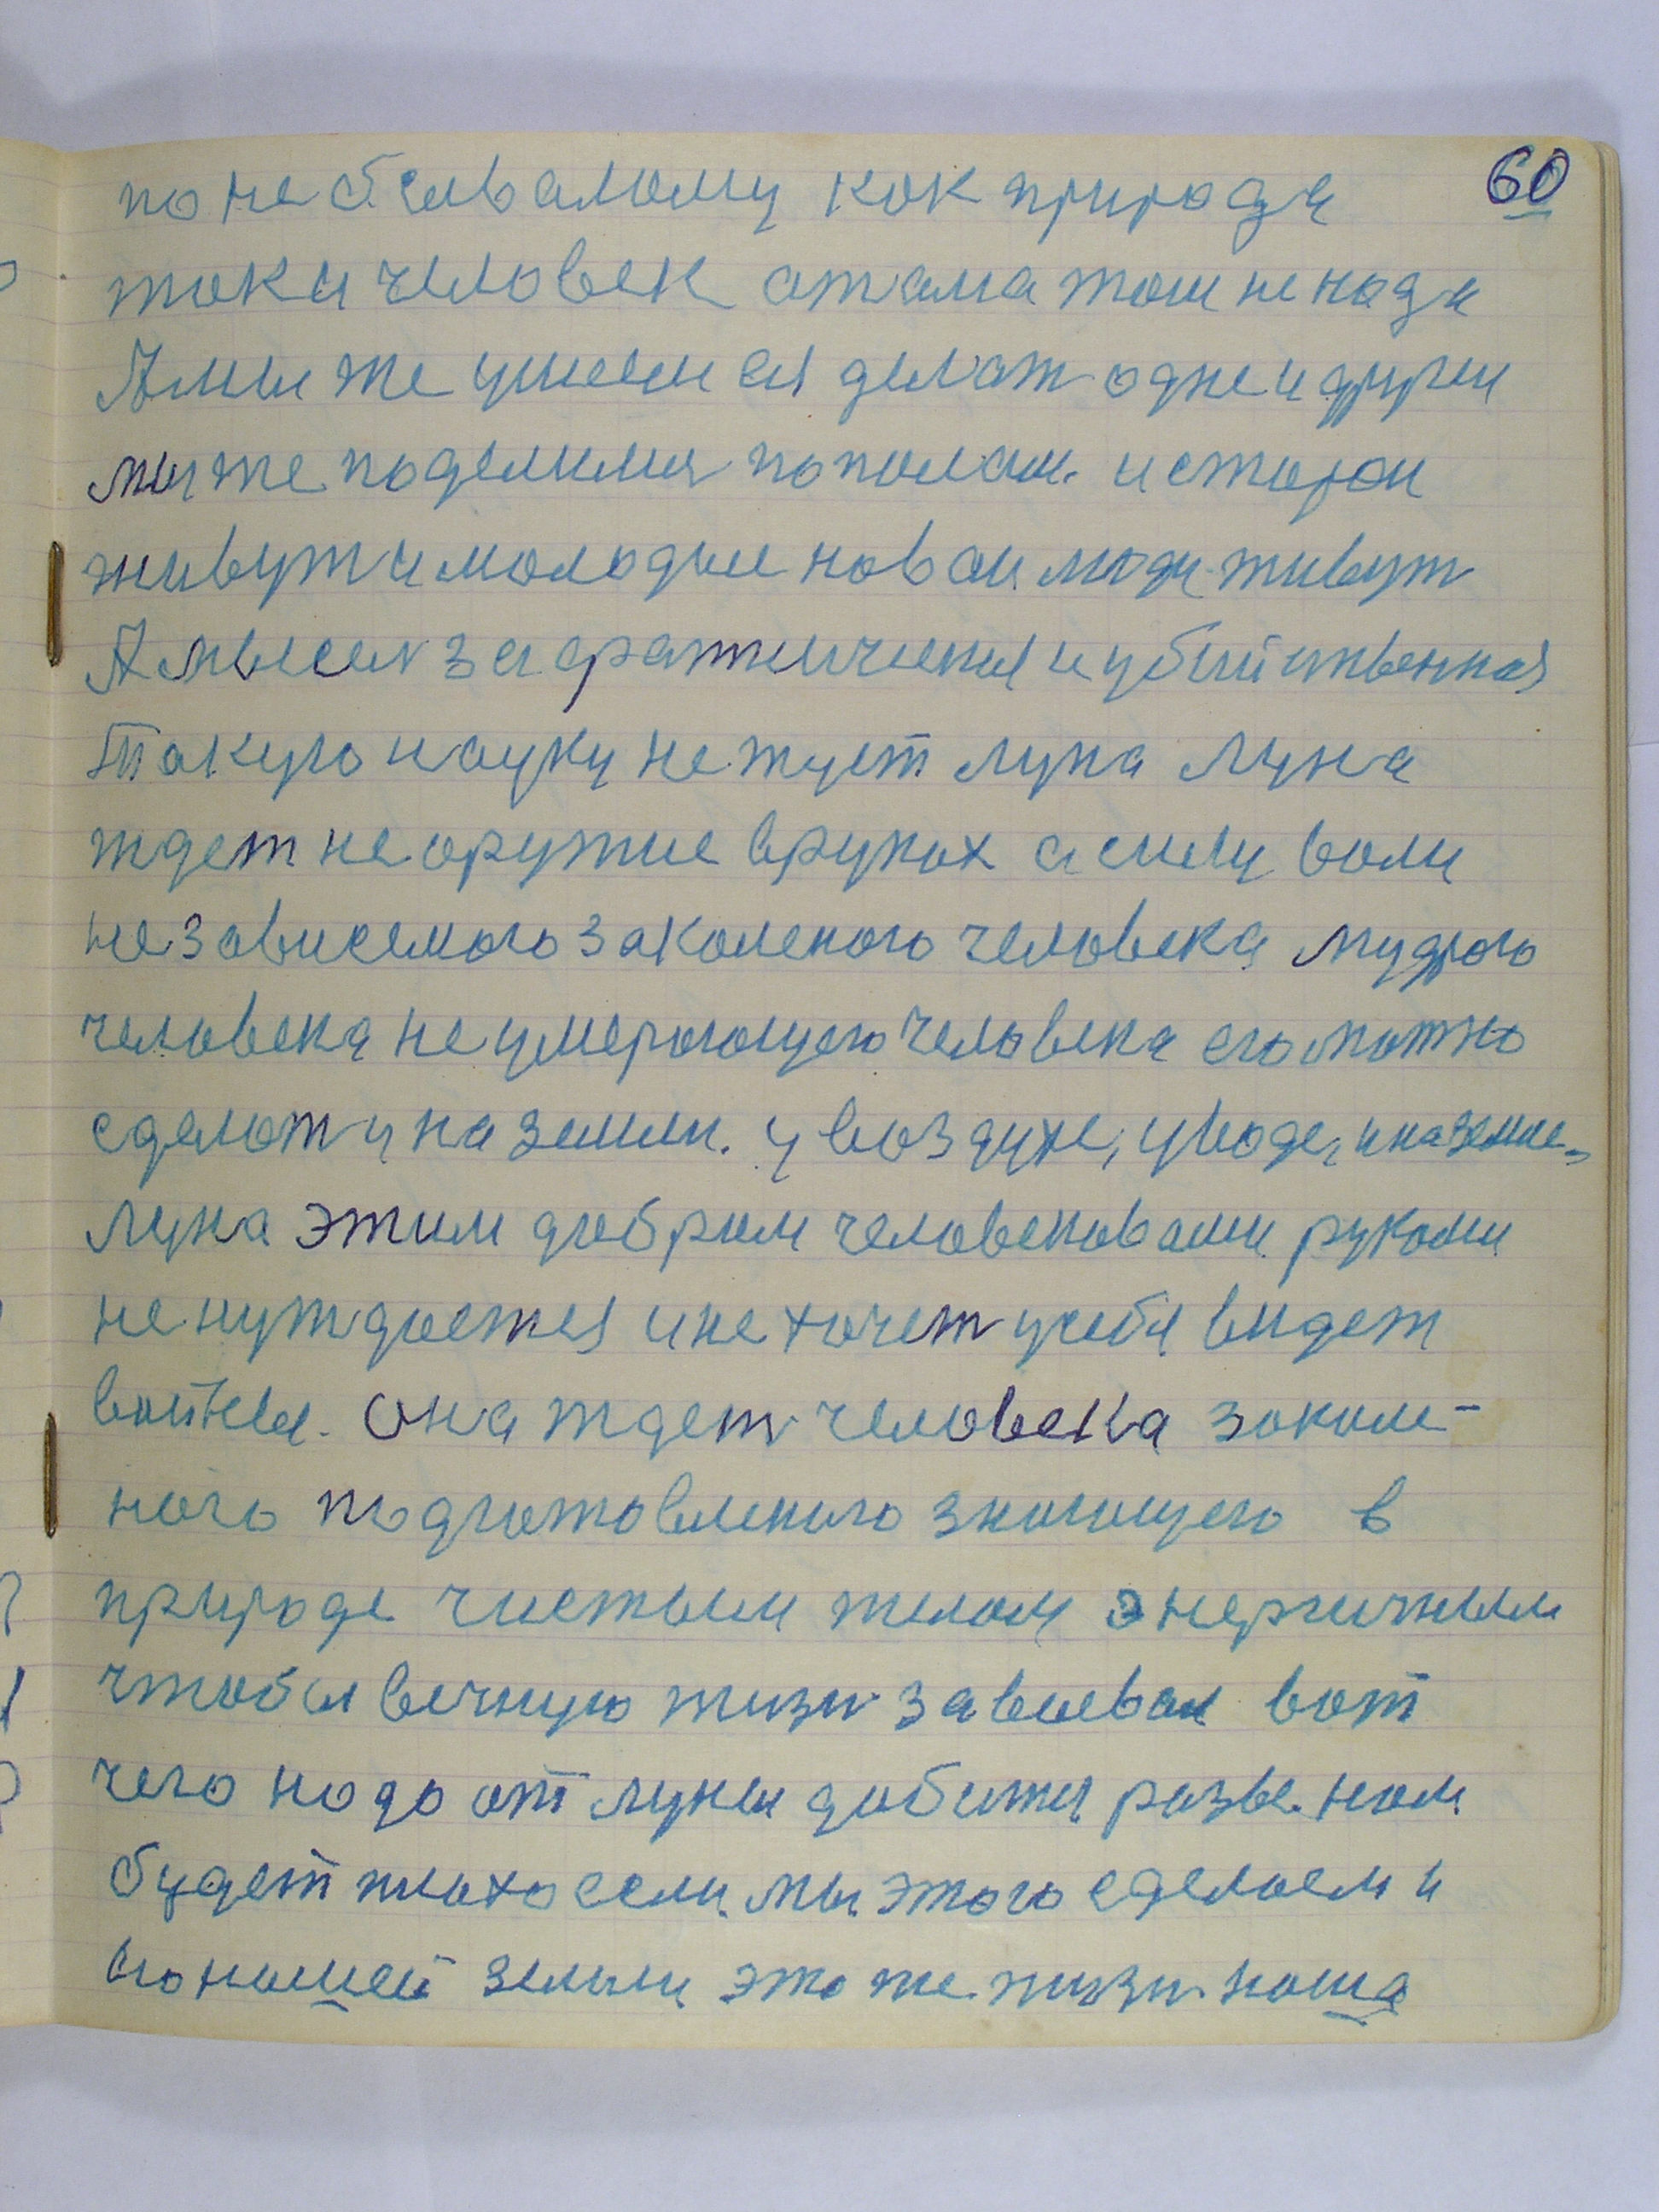 60
по небывалому как природа
так и человек атама там не нада
А мы же умеем ей делат одне и други
мы же поделимя пополам. и стараи
живут и молодые новаи люди живут
А мысел за
и убийственная
такую науку не ждет луна луна
ждет не оружие в руках а силу воли
независемого закаленого человека мудрого
человека неумерающего человека его можно
сделат и на земли. у воздухе, у воде, и на земле,
луна этим добрым человековами руками
не нуждается и не хочет у себя видет
войны. она ждет человека закале-
ного подготовленого знающего в
природе чистым телом энергичным
чтобы вечную жизн завоевал вот
чего надо от луны добится разве нам
будет плохо если мы этого сделаем и
во нашей земли это же жизн наша